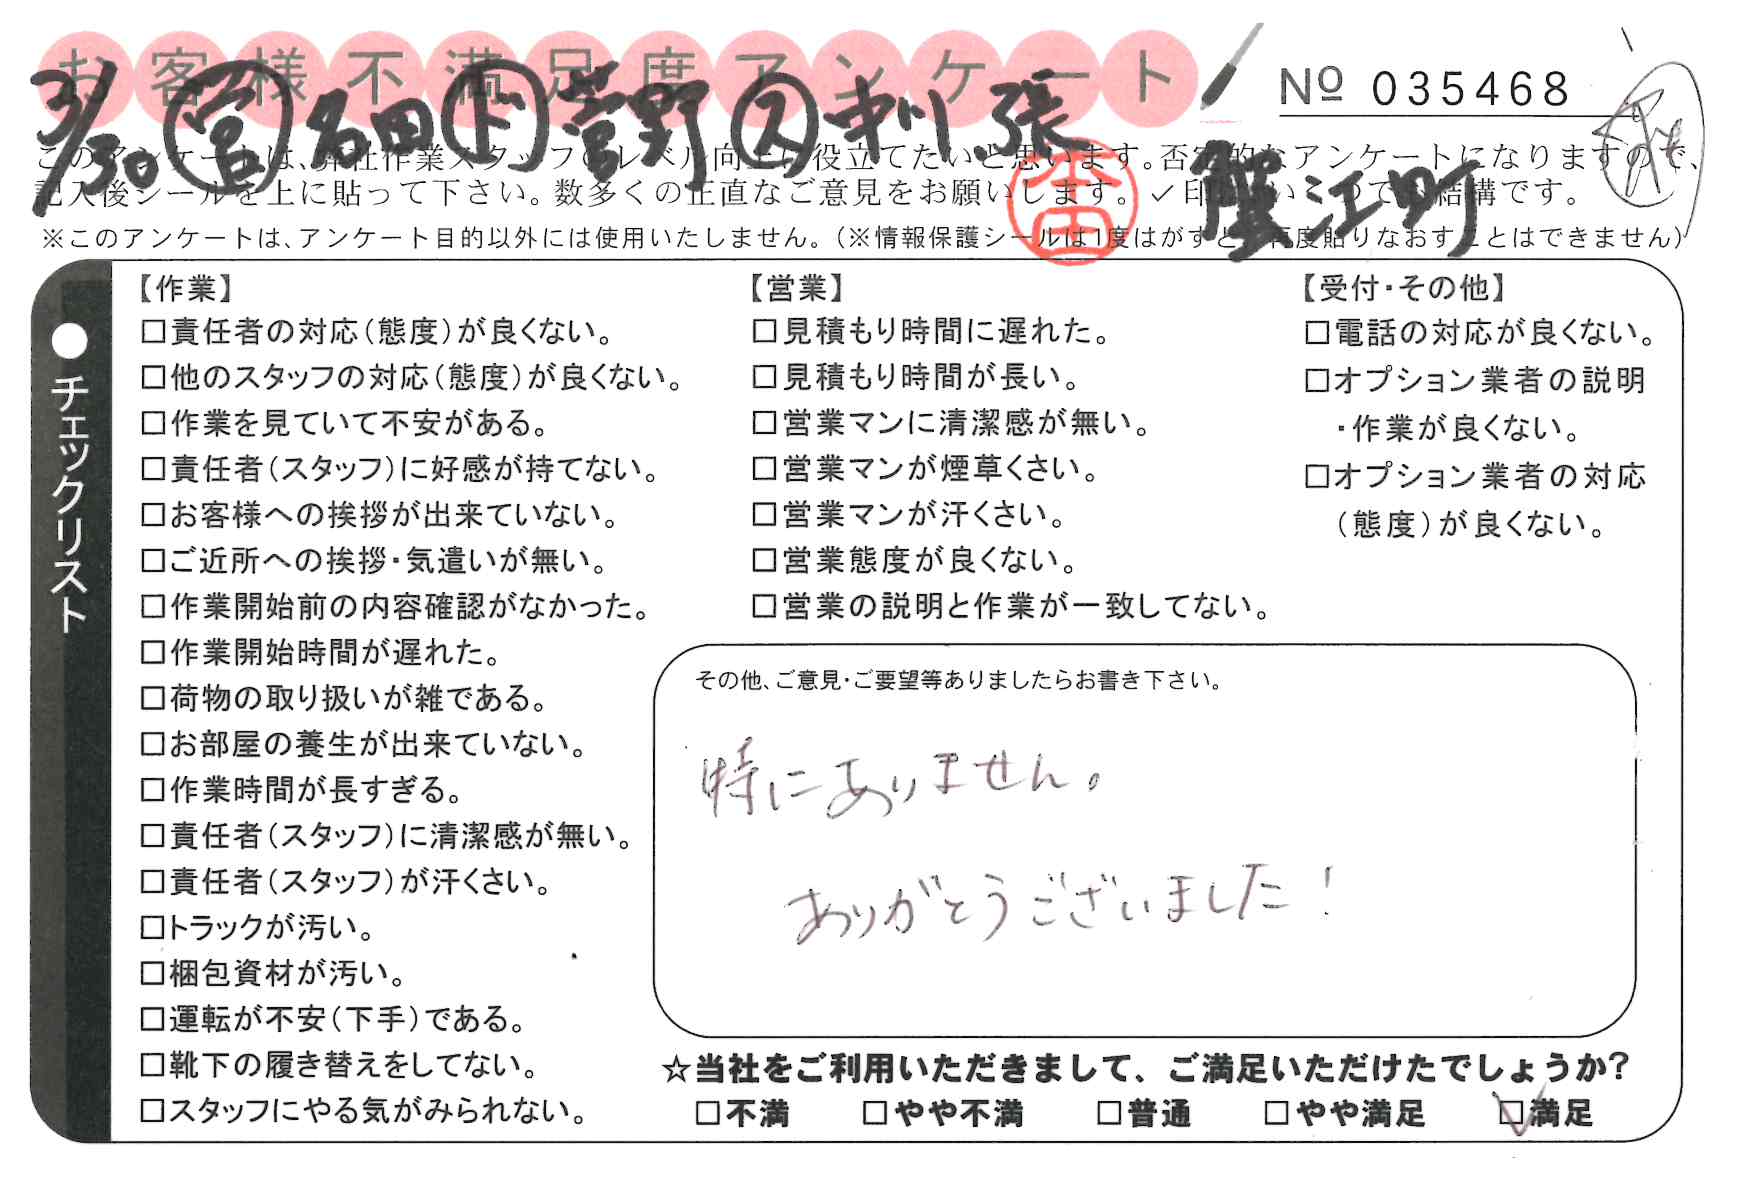 お客様不満足度アンケート
№ 035468
3/30 営 名田 ド 菅野 ス 中川、張
蟹江町
このアンケートは、弊社作業スタッフのレベル向上に役立てたいと思います。否定的なアンケートになりますので、
記入後シールを上に貼って下さい。数多くの正直なご意見をお願いします。✓印はいくつでも結構です。
※このアンケートは、アンケート目的以外には使用いたしません。(※情報保護シールは1度はがすと、再度貼りなおすことはできません)
●チェックリスト
【作業】
□責任者の対応(態度)が良くない。
□他のスタッフの対応(態度)が良くない。
□作業を見ていて不安がある。
□責任者(スタッフ)に好感が持てない。
□お客様への挨拶が出来ていない。
□ご近所への挨拶・気遣いが無い。
□作業開始前の内容確認がなかった。
□作業開始時間が遅れた。
□荷物の取り扱いが雑である。
□お部屋の養生が出来ていない。
□作業時間が長すぎる。
□責任者(スタッフ)に清潔感が無い。
□責任者(スタッフ)が汗くさい。
□トラックが汚い。
□梱包資材が汚い。
□運転が不安(下手)である。
□靴下の履き替えをしてない。
□スタッフにやる気がみられない。
【営業】
□見積もり時間に遅れた。
□見積もり時間が長い。
□営業マンに清潔感が無い。
□営業マンが煙草くさい。
□営業マンが汗くさい。
□営業態度が良くない。
□営業の説明と作業が一致してない。
【受付・その他】
□電話の対応が良くない。
□オプション業者の説明
・作業が良くない。
□オプション業者の対応
(態度)が良くない。
その他、ご意見・ご要望等ありましたらお書き下さい。
特にありません。
ありがとうございました!
☆当社をご利用いただきまして、ご満足いただけたでしょうか?
□不満 □やや不満 □普通 □やや満足 ☑満足